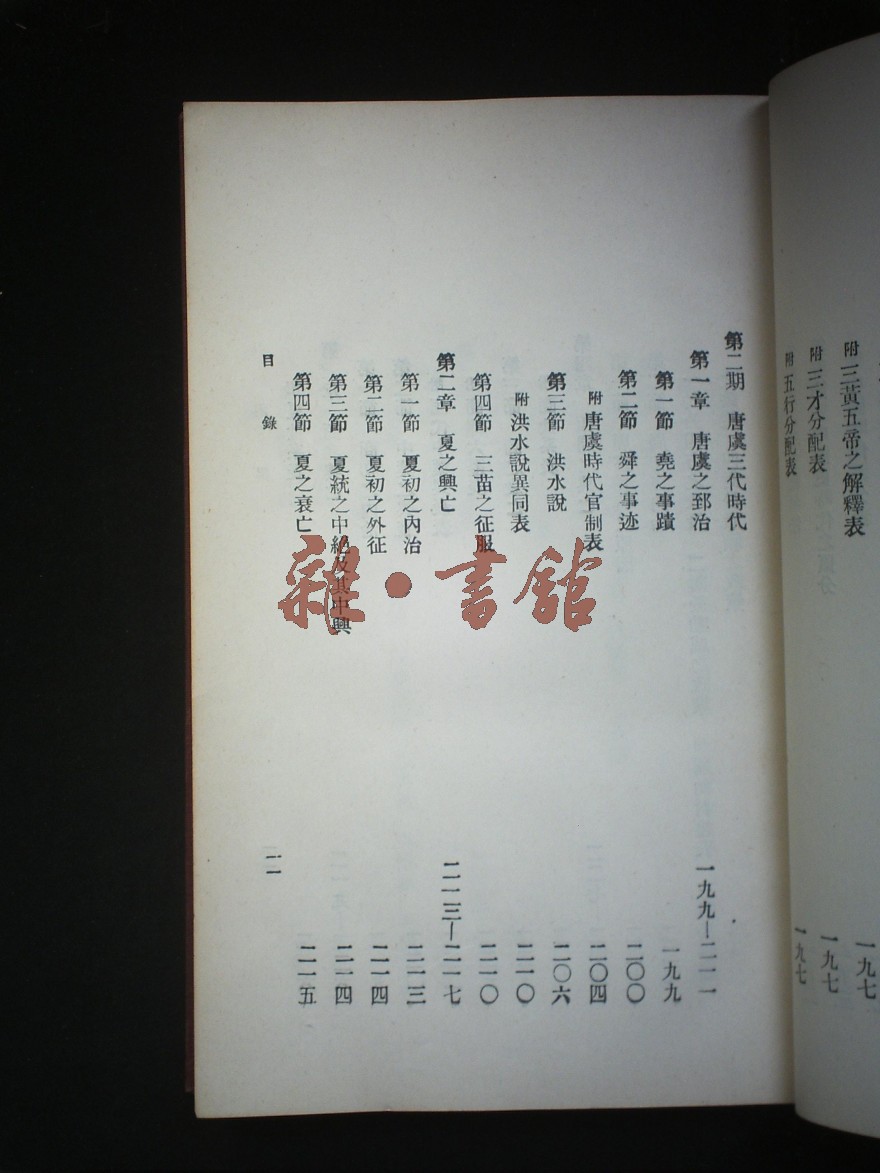 附 三黃五帝之解釋表 一九七
附 三才分配表 一九七
附 五行分配表 一九七
第二期 唐虞三代時代
第一章 唐虞之郅治 一九九—二一一
第一節 堯之事蹟 一九九
第二節 舜之事迹 二〇〇
附 唐虞時代官制表 二〇四
第三節 洪水說 二〇六
附 洪水說異同表 二一〇
第四節 三苗之征服 二一〇
第二章 夏之興亡 二一三—二一七
第一節 夏初之內治 二一三
第二節 夏初之外征 二一四
第三節 夏統之中絕及其中興 二一四
第四節 夏之衰亡 二一五
目錄 一一
雜·書館